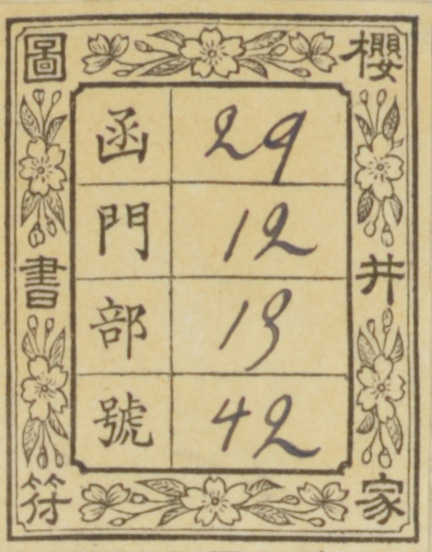 櫻井家
圖書符
函 29
門 12
部 13
號 42